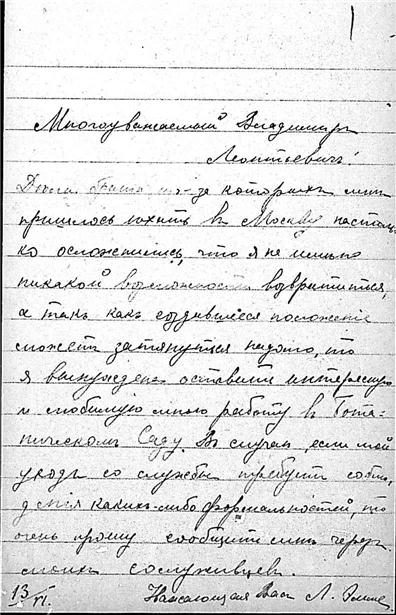 Многоуважаемый Владимиръ
Леонтьевичъ!
Дѣла брата из-за которыхъ мнѣ
пришлось ѣхать въ Москву настоль
ко осложнились, что я не имѣю
никакой возможности возвратиться,
а такъ какъ создавшееся положеніе
можетъ затянуться надолго, то
я вынуждена оставить интересную
и любимую мною работу въ Бота-
ническомъ Саду. Въ случаѣ, если мой
уходъ со службы требуетъ соблю-
денія какихъ-либо формальностей, то
очень прошу сообщить мнѣ черезъ
моихъ сослуживцевъ.
13/VI. Уважающая Васъ Л.